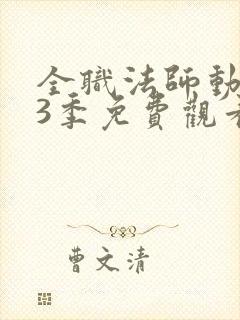 全職法師動
3季免費觀看
曹文清